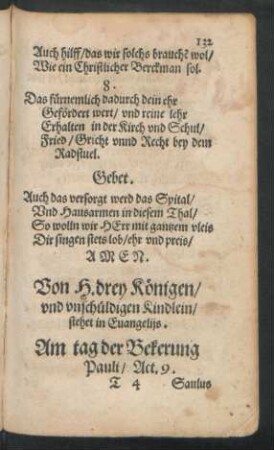 132
Auch hilff/das wir solchs brauchẽ wol/
Wie ein Christlicher Berckman sol.
8.
Das fürnemlich dadurch dein ehr
Gefördert wert/ vnd reine lehr
Erhalten in der Kirch vnd Schul/
Fried/Gricht vnnd Recht bey dem
Radstuel.
Gebet.
Auch das versorgt werd das Spital/
Vnd Hausarmen in diesem Thal/
So wolln wir HErr mit gantzem vleis
Dir singen stets lob/ehr vnd preis/
AMEN.
Von H. drey Königen/
vnd vnschüldigen Kindlein/
stehet in Euangelijs.
Am tag der Bekerung
Pauli/ Act. 9.
T 4 Saulus